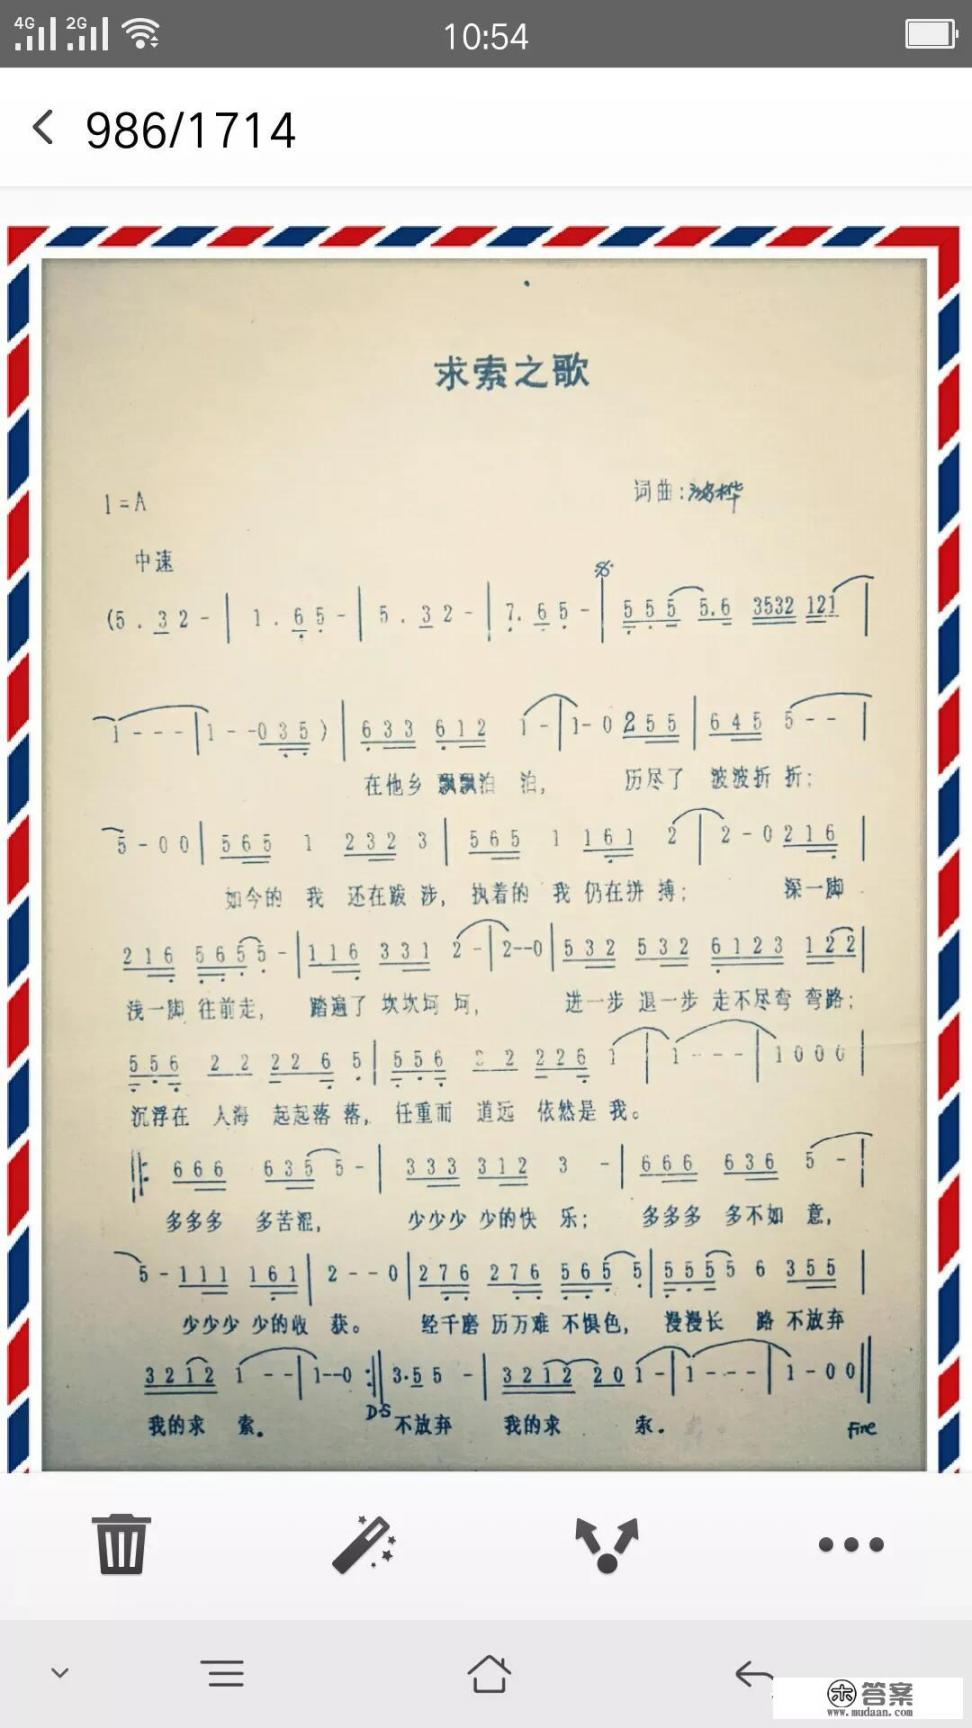 4G 2G 10:54
986/1714
求索之歌
1=A 词曲:鸿桦
中速
(5 . 3 2 - | 1 . 6 5 - | 5 . 3 2 - | 7. 6 5 - | 5 5 5 5.6 3532 121 |
1 - - - | 1 - - 0 3 5 ) | 6 3 3 6 1 2 1 - | 1 - 0 2 5 5 | 6 4 5 5 - - |
在他乡 飘飘泊 泊, 历尽了 波波折 折;
5 - 0 0 | 5 6 5 1 2 3 2 3 | 5 6 5 1 1 6 1 2 | 2 - 0 2 1 6 |
如今的 我 还在跋 涉, 执着的 我 仍在拼 搏; 深一脚
2 1 6 5 6 5 5 - | 1 1 6 3 3 1 2 - | 2--0 | 5 3 2 5 3 2 6 1 2 3 1 2 2 |
浅一脚 往前走, 踏遍了 坎坎坷 坷, 进一步 退一步 走不尽弯 弯路;
5 5 6 2 2 2 2 6 5 | 5 5 6 2 2 2 2 6 1 | 1 - - - | 1 0 0 0 |
沉浮在 人海 起起落 落, 任重而 道远 依然是 我。
‖: 6 6 6 6 3 5 5 - | 3 3 3 3 1 2 3 - | 6 6 6 6 3 6 5 - |
多多多 多苦涩, 少少少 少的快 乐; 多多多 多不如 意,
5 - 1 1 1 1 6 1 | 2 - - 0 | 2 7 6 2 7 6 5 6 5 5 | 5 5 5 5 6 3 5 5 |
少少少 少的收 获。 经千磨 历万难 不惧色, 漫漫长 路 不放弃
3 2 1 2 1 - - | 1--0 :‖ 3.5 5 - | 3 2 1 2 2 0 1 - | 1 - - - | 1 - 0 0 ‖
我的求 索。 D.S 不放弃 我的求 索. fine
答案
www.mudaan.com